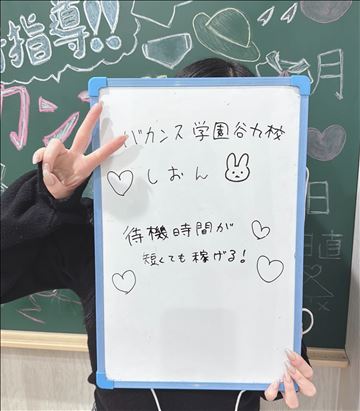 指導!!
バカンス学園谷九校
しおん
待機時間が
短くても稼げる!
月
日
日直